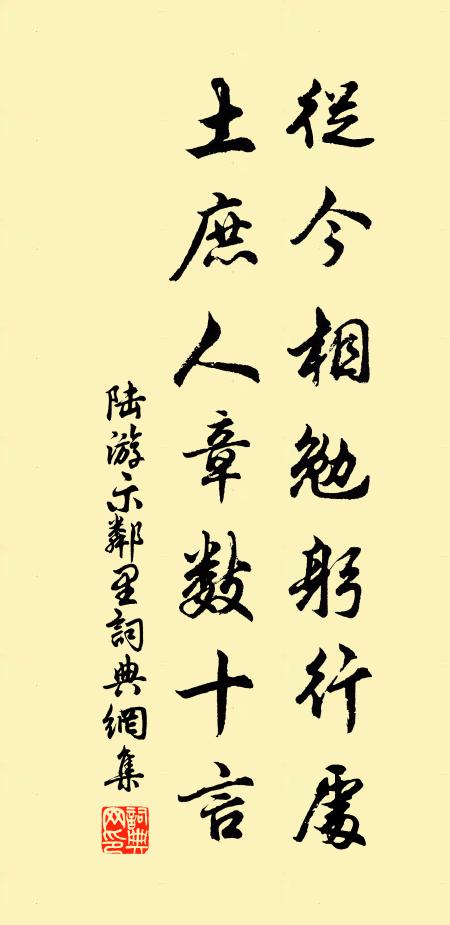 從今相勉躬行處
士庶人章數十言
陸游示鄰里詞典網集
詞典網印